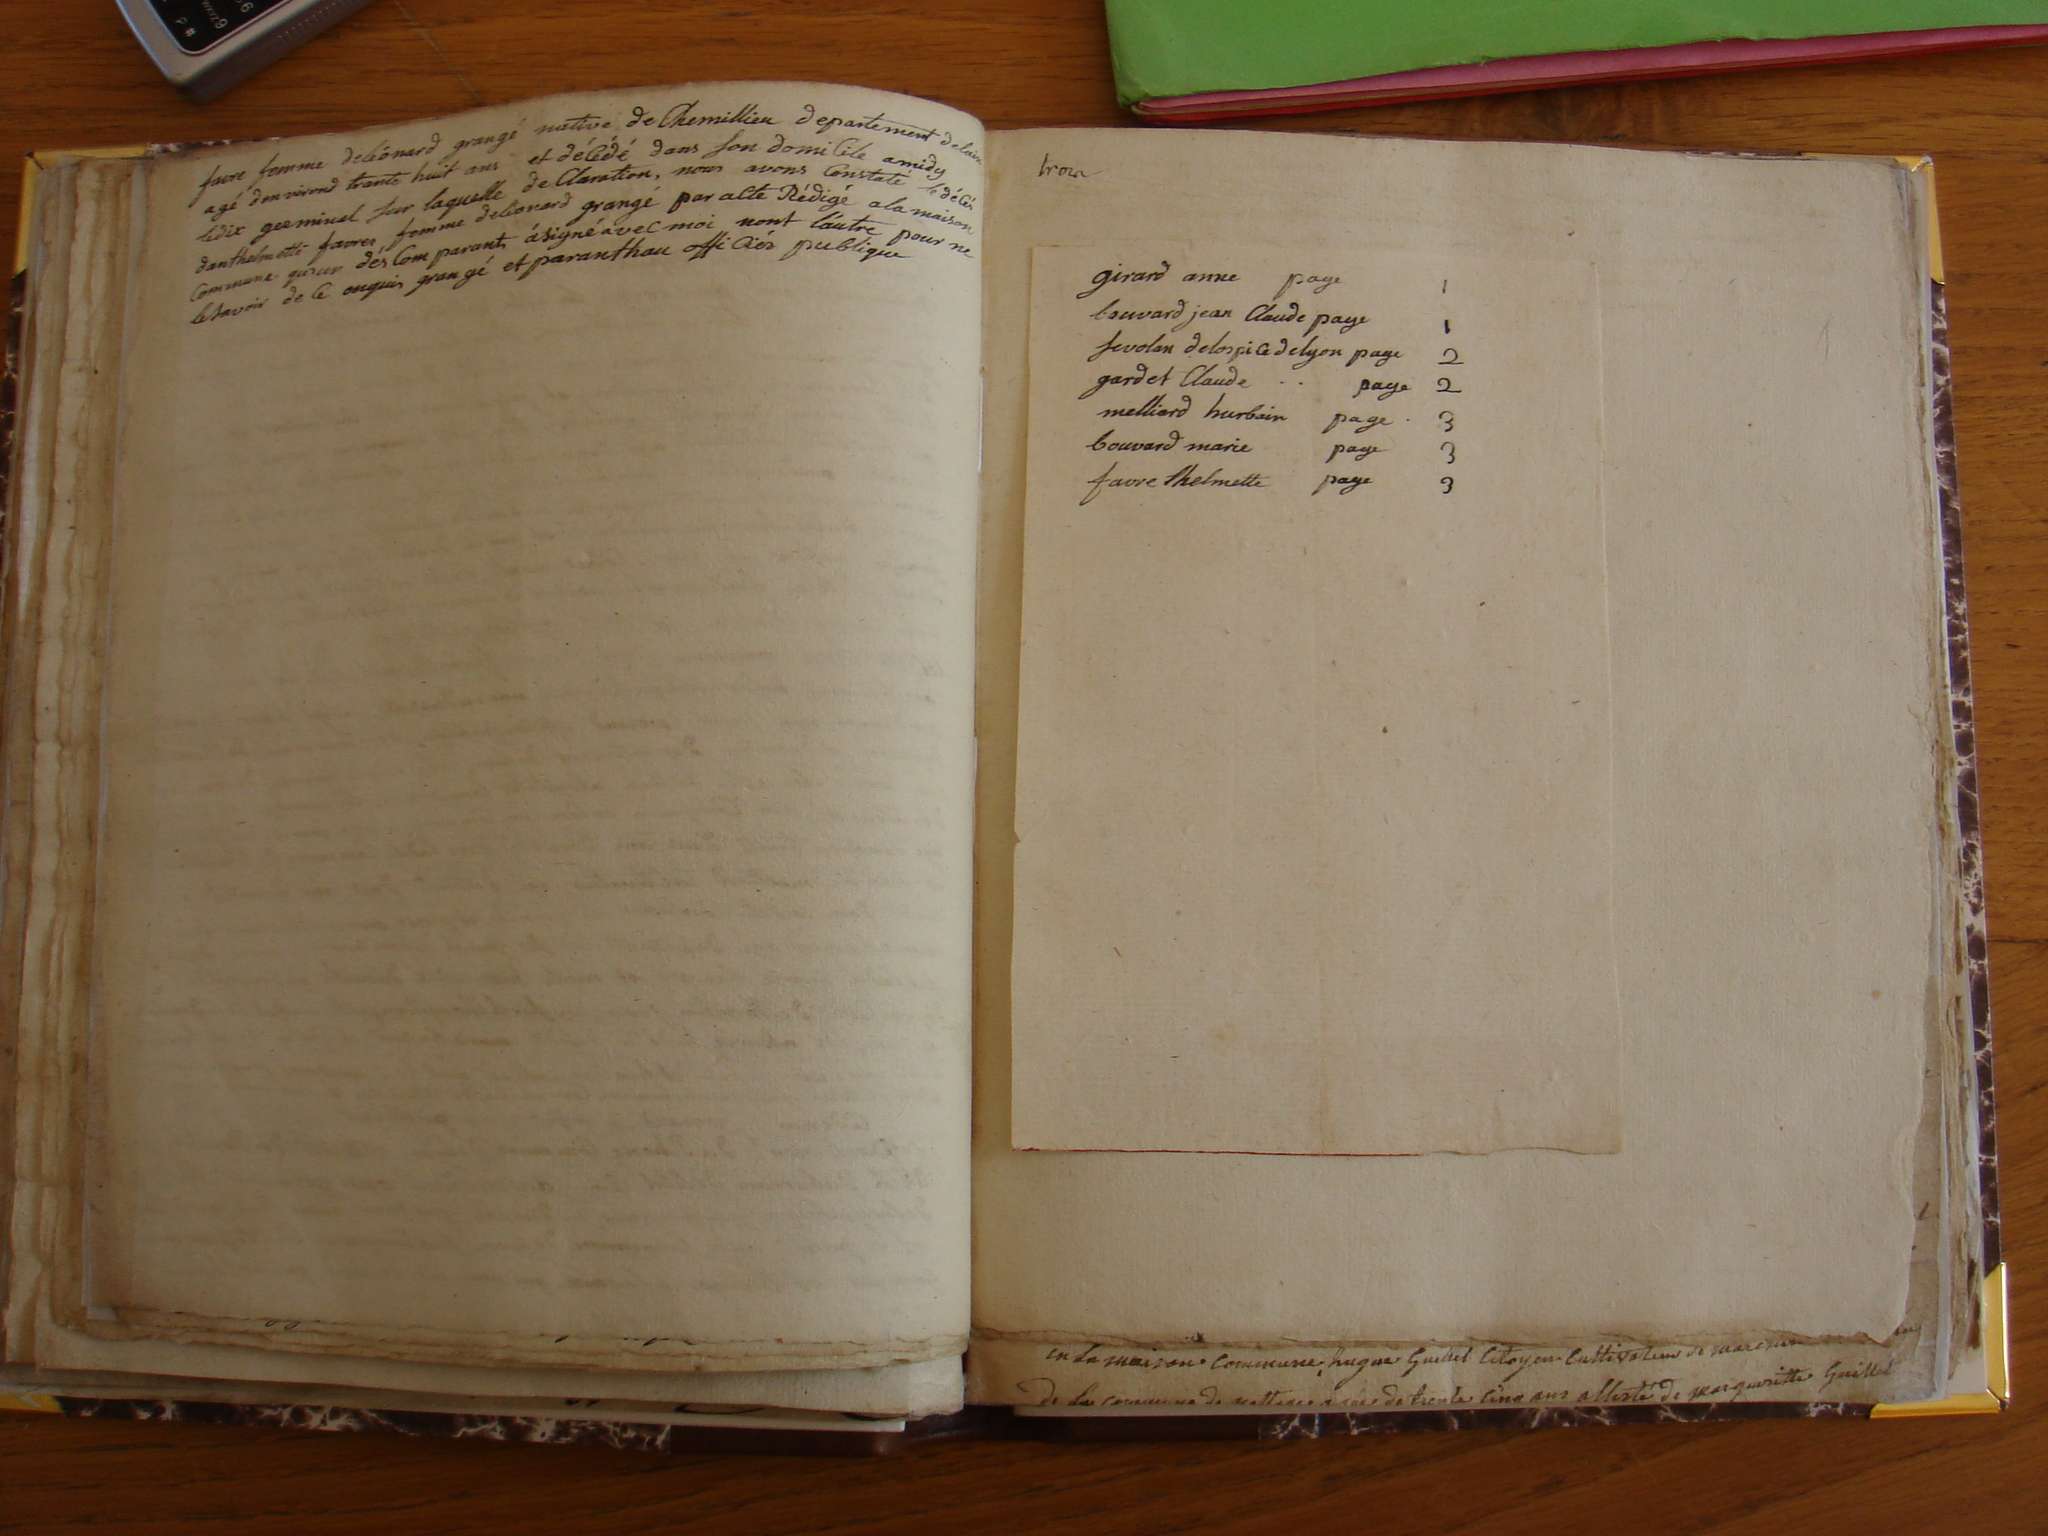 favre femme deléonard grangé native de Chemillieu departement delain
agé denvirond trante huit ans et décédé dans son domicile amidy
ledix germinal sur laquelle de Claration, nous avons Constaté le décés
danthelmette favres, femme deléonard grangé par acte Rédigé a la maison
Commune quun dés Comparants ásigné avec moi nont lautre pour ne
le savoir de ce enquis grangé et paranthau officiér publique
girard anne page 1
bouvard jean Claude page 1
sevolan delospice delyon page 2
gardet Claude . . page 2
melliard hurbain page . 3
bouvard marie page 3
favre thelmette page 3
en La maison Commune hugue Guillet Citoyen Cultivateur de
De La commune de agé de trente Cinq ans de margueritte Guillet